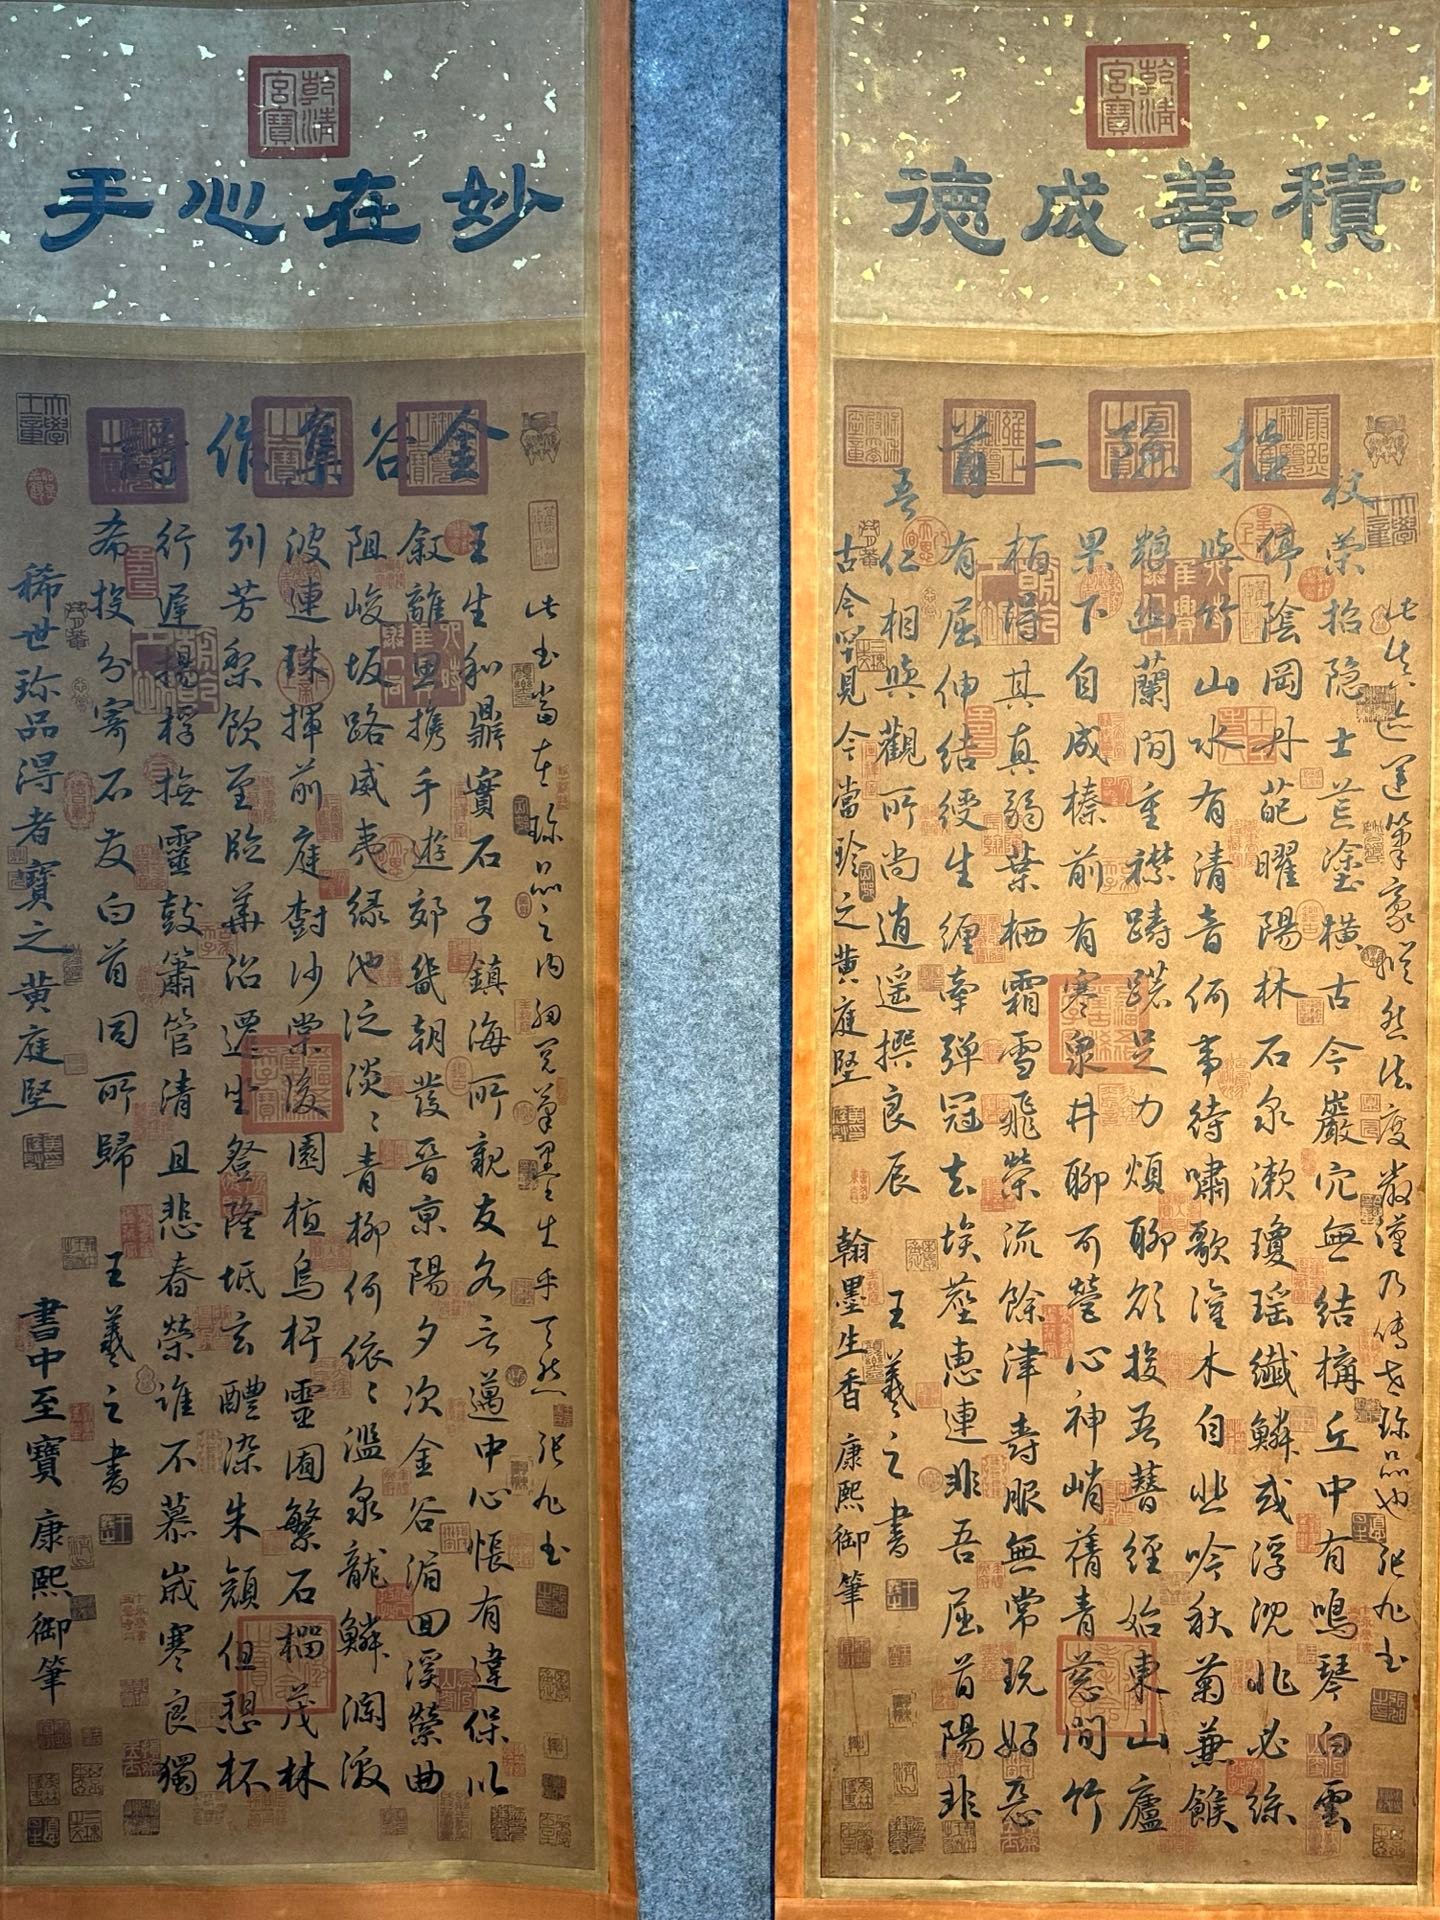 乾清宮寶
積善成德
招隱二首
此真迹運筆豪縱然法度嚴謹乃傳世珍品也 張旭書
杖策招隐士荒塗橫古今巖穴無結構丘中有鳴琴白雲
停陰岡丹葩曜陽林石泉漱瓊瑤纖鱗或浮沈非必絲
與竹山水有清音何事待嘯歌灌木自悲吟秋菊兼餱
粮幽蘭間重襟躊躇足力煩聊欲投吾簪經始東山廬
果下自成榛前有寒泉井聊可瑩心神峭蒨青葱間竹
栢得其真弱葉栖霜雪飛榮流餘津爵服無常玩好惡
有屈伸結綬生纏牽彈冠去埃塵惠連非吾屈首陽非
吾仁相與觀所尚逍遥撰良辰 王羲之書
古今罕見今當珍之黄庭堅 翰墨生香 康熙御筆
乾清宮寶
妙在心手
金谷集作詩
此書當在珍品之内細觀筆墨生乎天然 張旭書
王生和鼎實石子鎮海沂親友各言邁中心悵有違保以
叙離思攜手遊郊畿朝發晉京陽夕次金谷湄回溪縈曲
阻峻坂路威夷緑池泛淡〻青柳何依〻濫泉龍鱗瀾激
波連珠揮前庭樹沙棠後園植烏椑靈囿繁石榴茂林
列芳梨飲至臨華沼遷坐登隆坻玄醴染朱顏但愬杯
行遲揚桴撫靈鼓簫管清且悲春榮誰不慕嵗寒良獨
希投分寄石友白首同所歸 王羲之書
稀世珍品得者寶之黄庭堅 書中至寶 康熙御筆